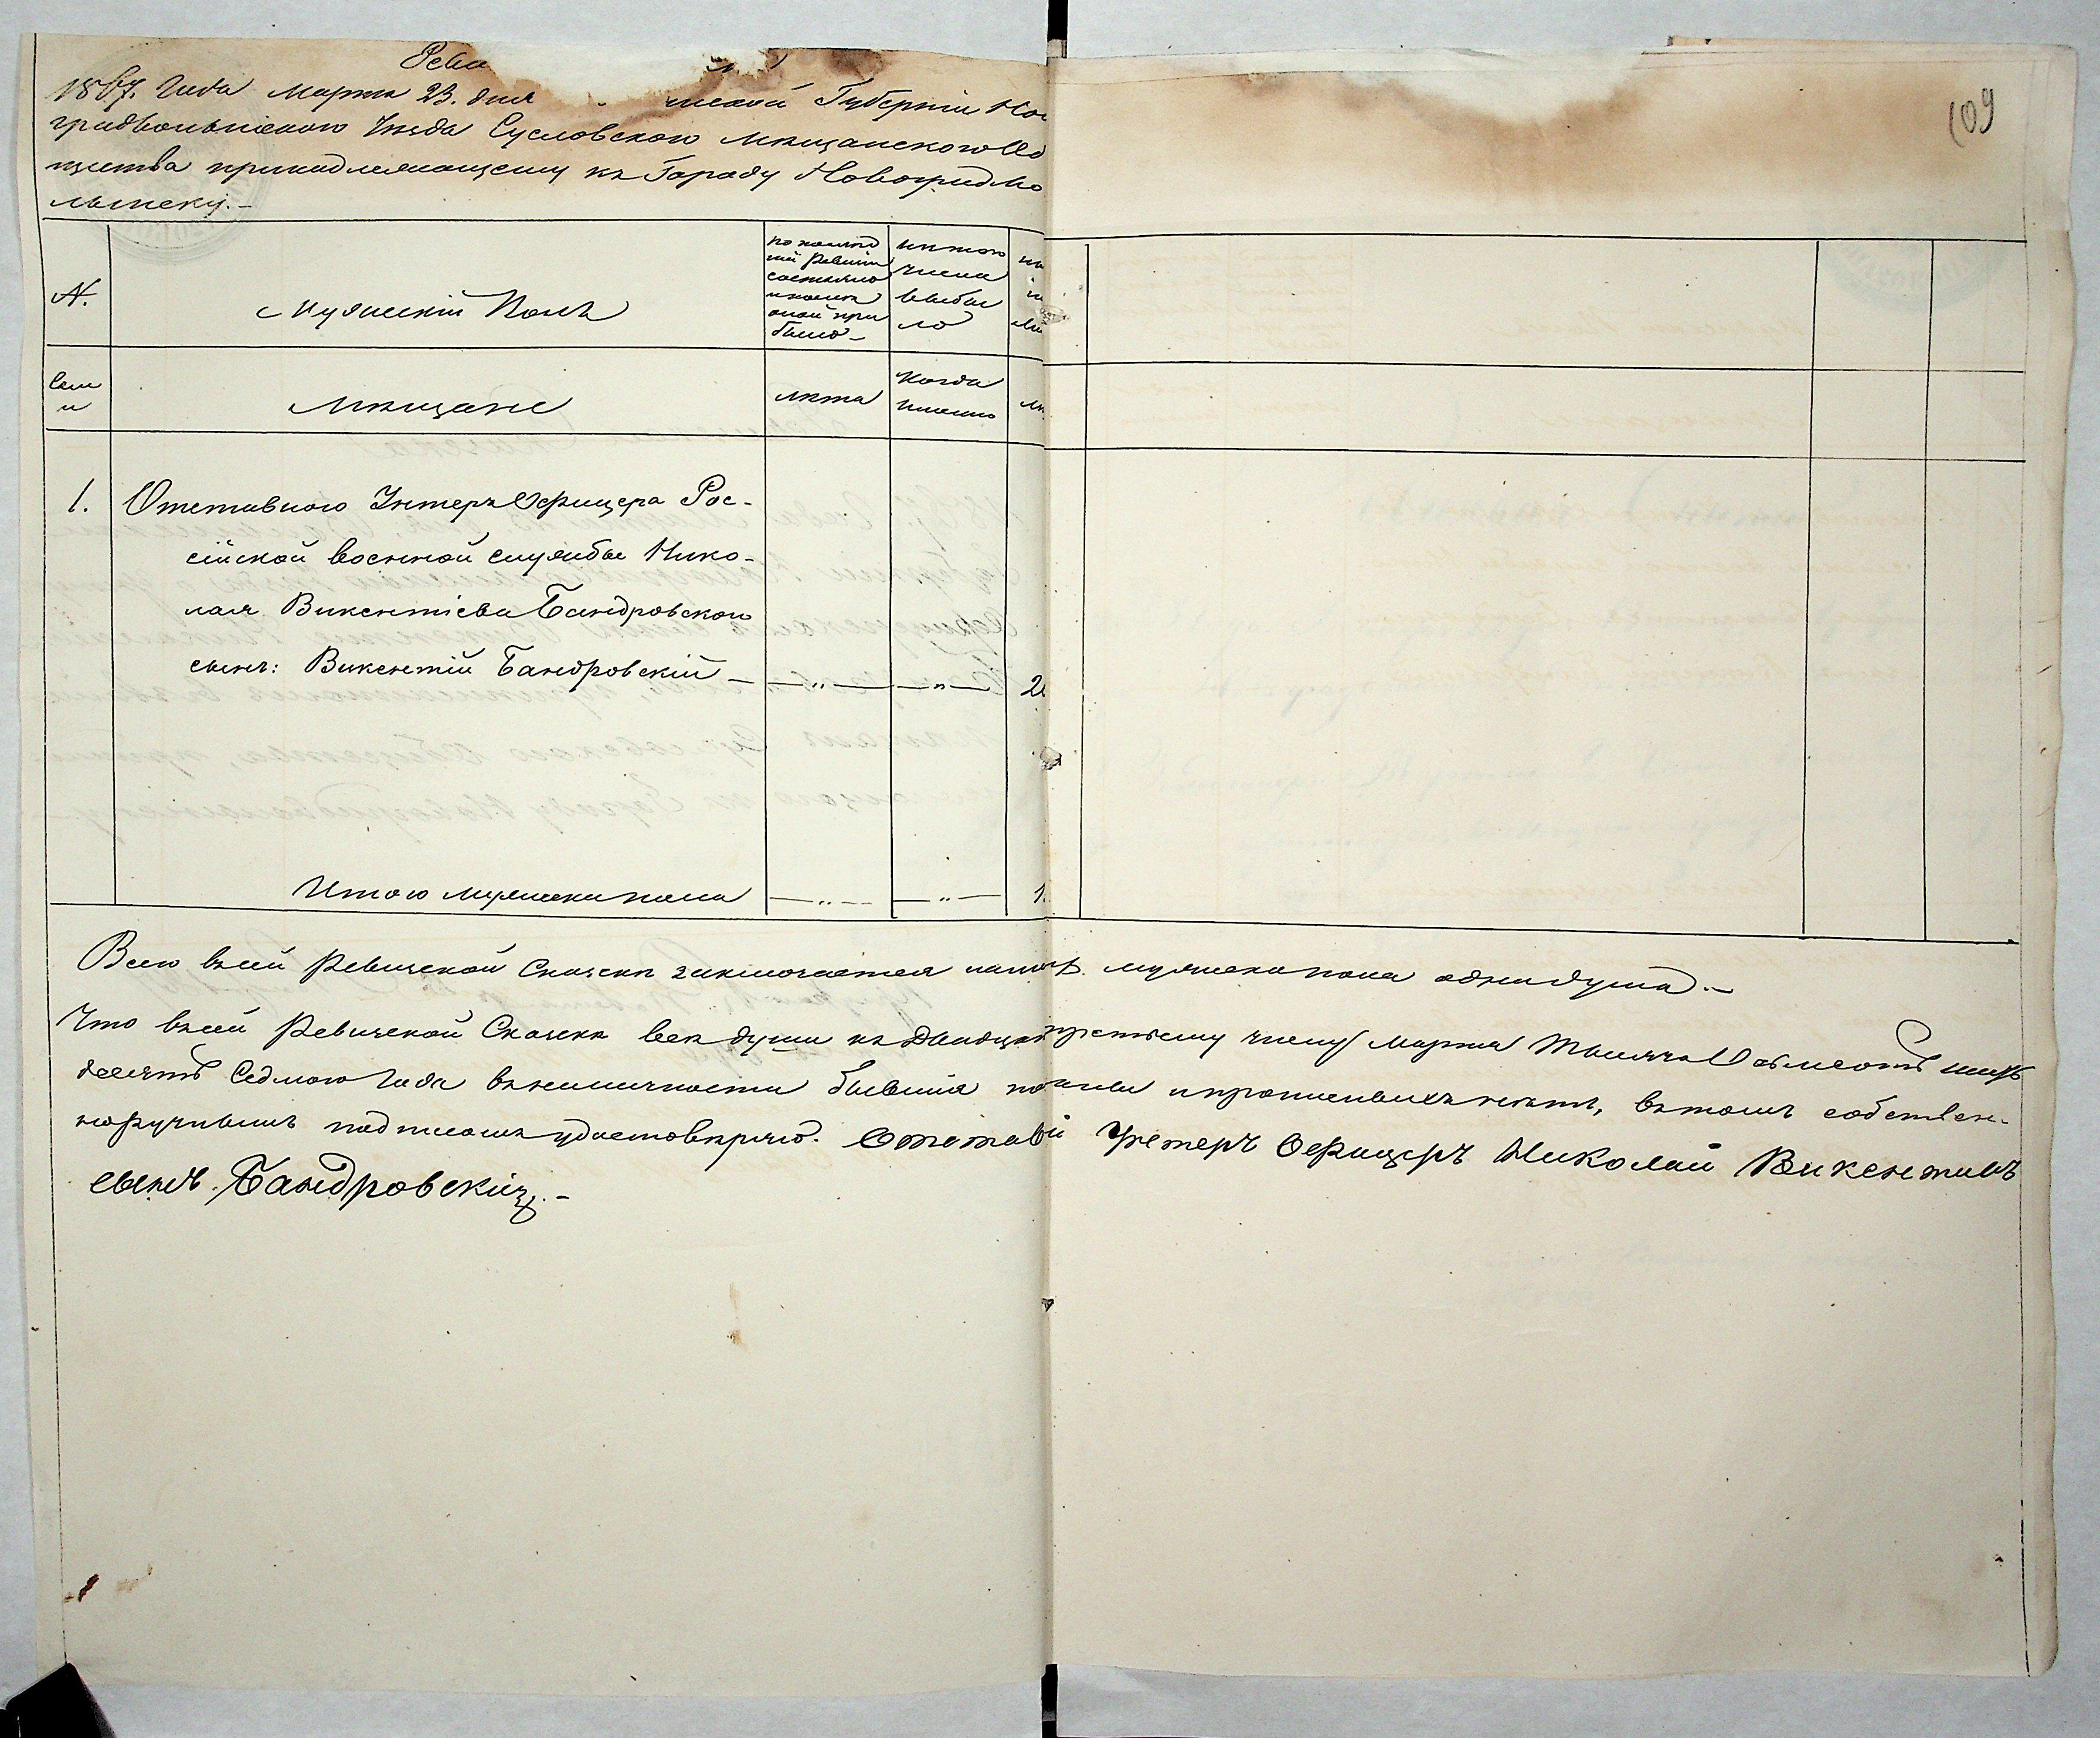 Реви
1867. Года Марта 23. дня ...нской Губерніи Нов
градволынскаго Уѣзда Сусловскаго Мѣщанскаго Об
щества принадлежащему къ Городу Новоградво
лынску.-
109
№.
Мужескій Полъ
по послѣд
ней Ревизіи
состояло
и послѣ
оной при
было-
изъ того
числа
выбы
ло
Семи
Мѣщане
лѣта
Когда
именно
1. Отставного Унтеръ Офицера Рос-
сійской военной службы Нико-
лая Викентіева Бандровскаго
сынъ: Викентій Бандровскій - — „ — — „ — 2
Итого мужеска пола — „ — — „ — 1.
Всего въсей Ревизской Сказкѣ заключается мужеска пола одна душа.-
Что въсей Ревизской Сказкѣ всѣ души къ Двадцать третьему числу Марта Тысяча Восмсотъ шесть
десятъ Седмого Года вънеличности бывшія показаны ипрописныхъ нѣтъ, вътомъ собствен-
норучнымъ подписомъ удостовѣряю. Отстав Унтеръ Офицеръ Николай Викентивъ
сынъ Бандровскій.-